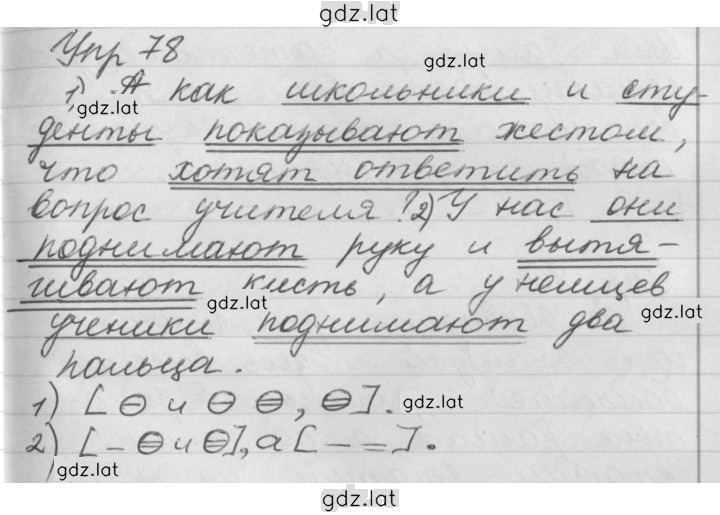 gdz.lat
Упр 78
gdz.lat
1) А как школьники и сту-
gdz.lat
денты показывают жестом,
что хотят ответить на
вопрос учителя? 2) У нас они
поднимают руку и вытя-
гивают кисть, а у немцев
gdz.lat
gdz.lat
ученики поднимают два
пальца.
1) [⊖ и ⊖ ⊖, ⊖].
gdz.lat
2) [– ⊖ и ⊖], а [– =].
gdz.lat
gdz.lat